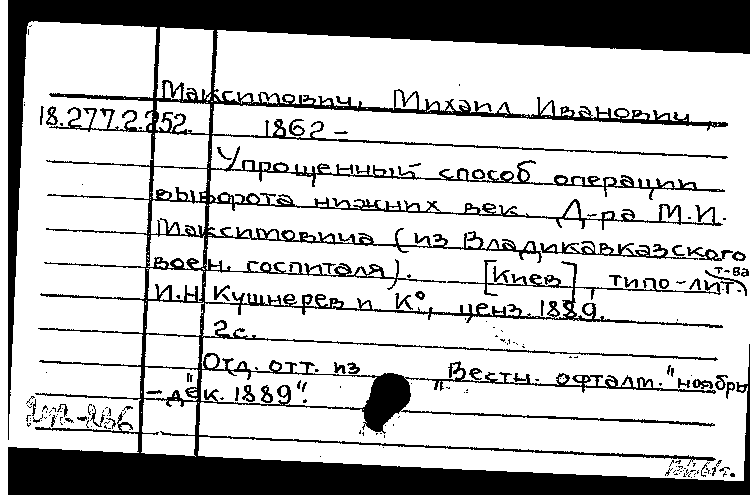 Максимович, Михаил Иванович,
18.277.2.252. 1862 –
Упрощенный способ операции
выворота нижних век. Д-ра М.И.
Максимовича (из Владикавказского
воен. госпиталя). [Киев], типо-лит. т-ва
И.Н. Кушнерев и К°, ценз. 1889.
2с.
Отд. отт. из "Вестн. офталм." ноябрь
– дек. 1889".